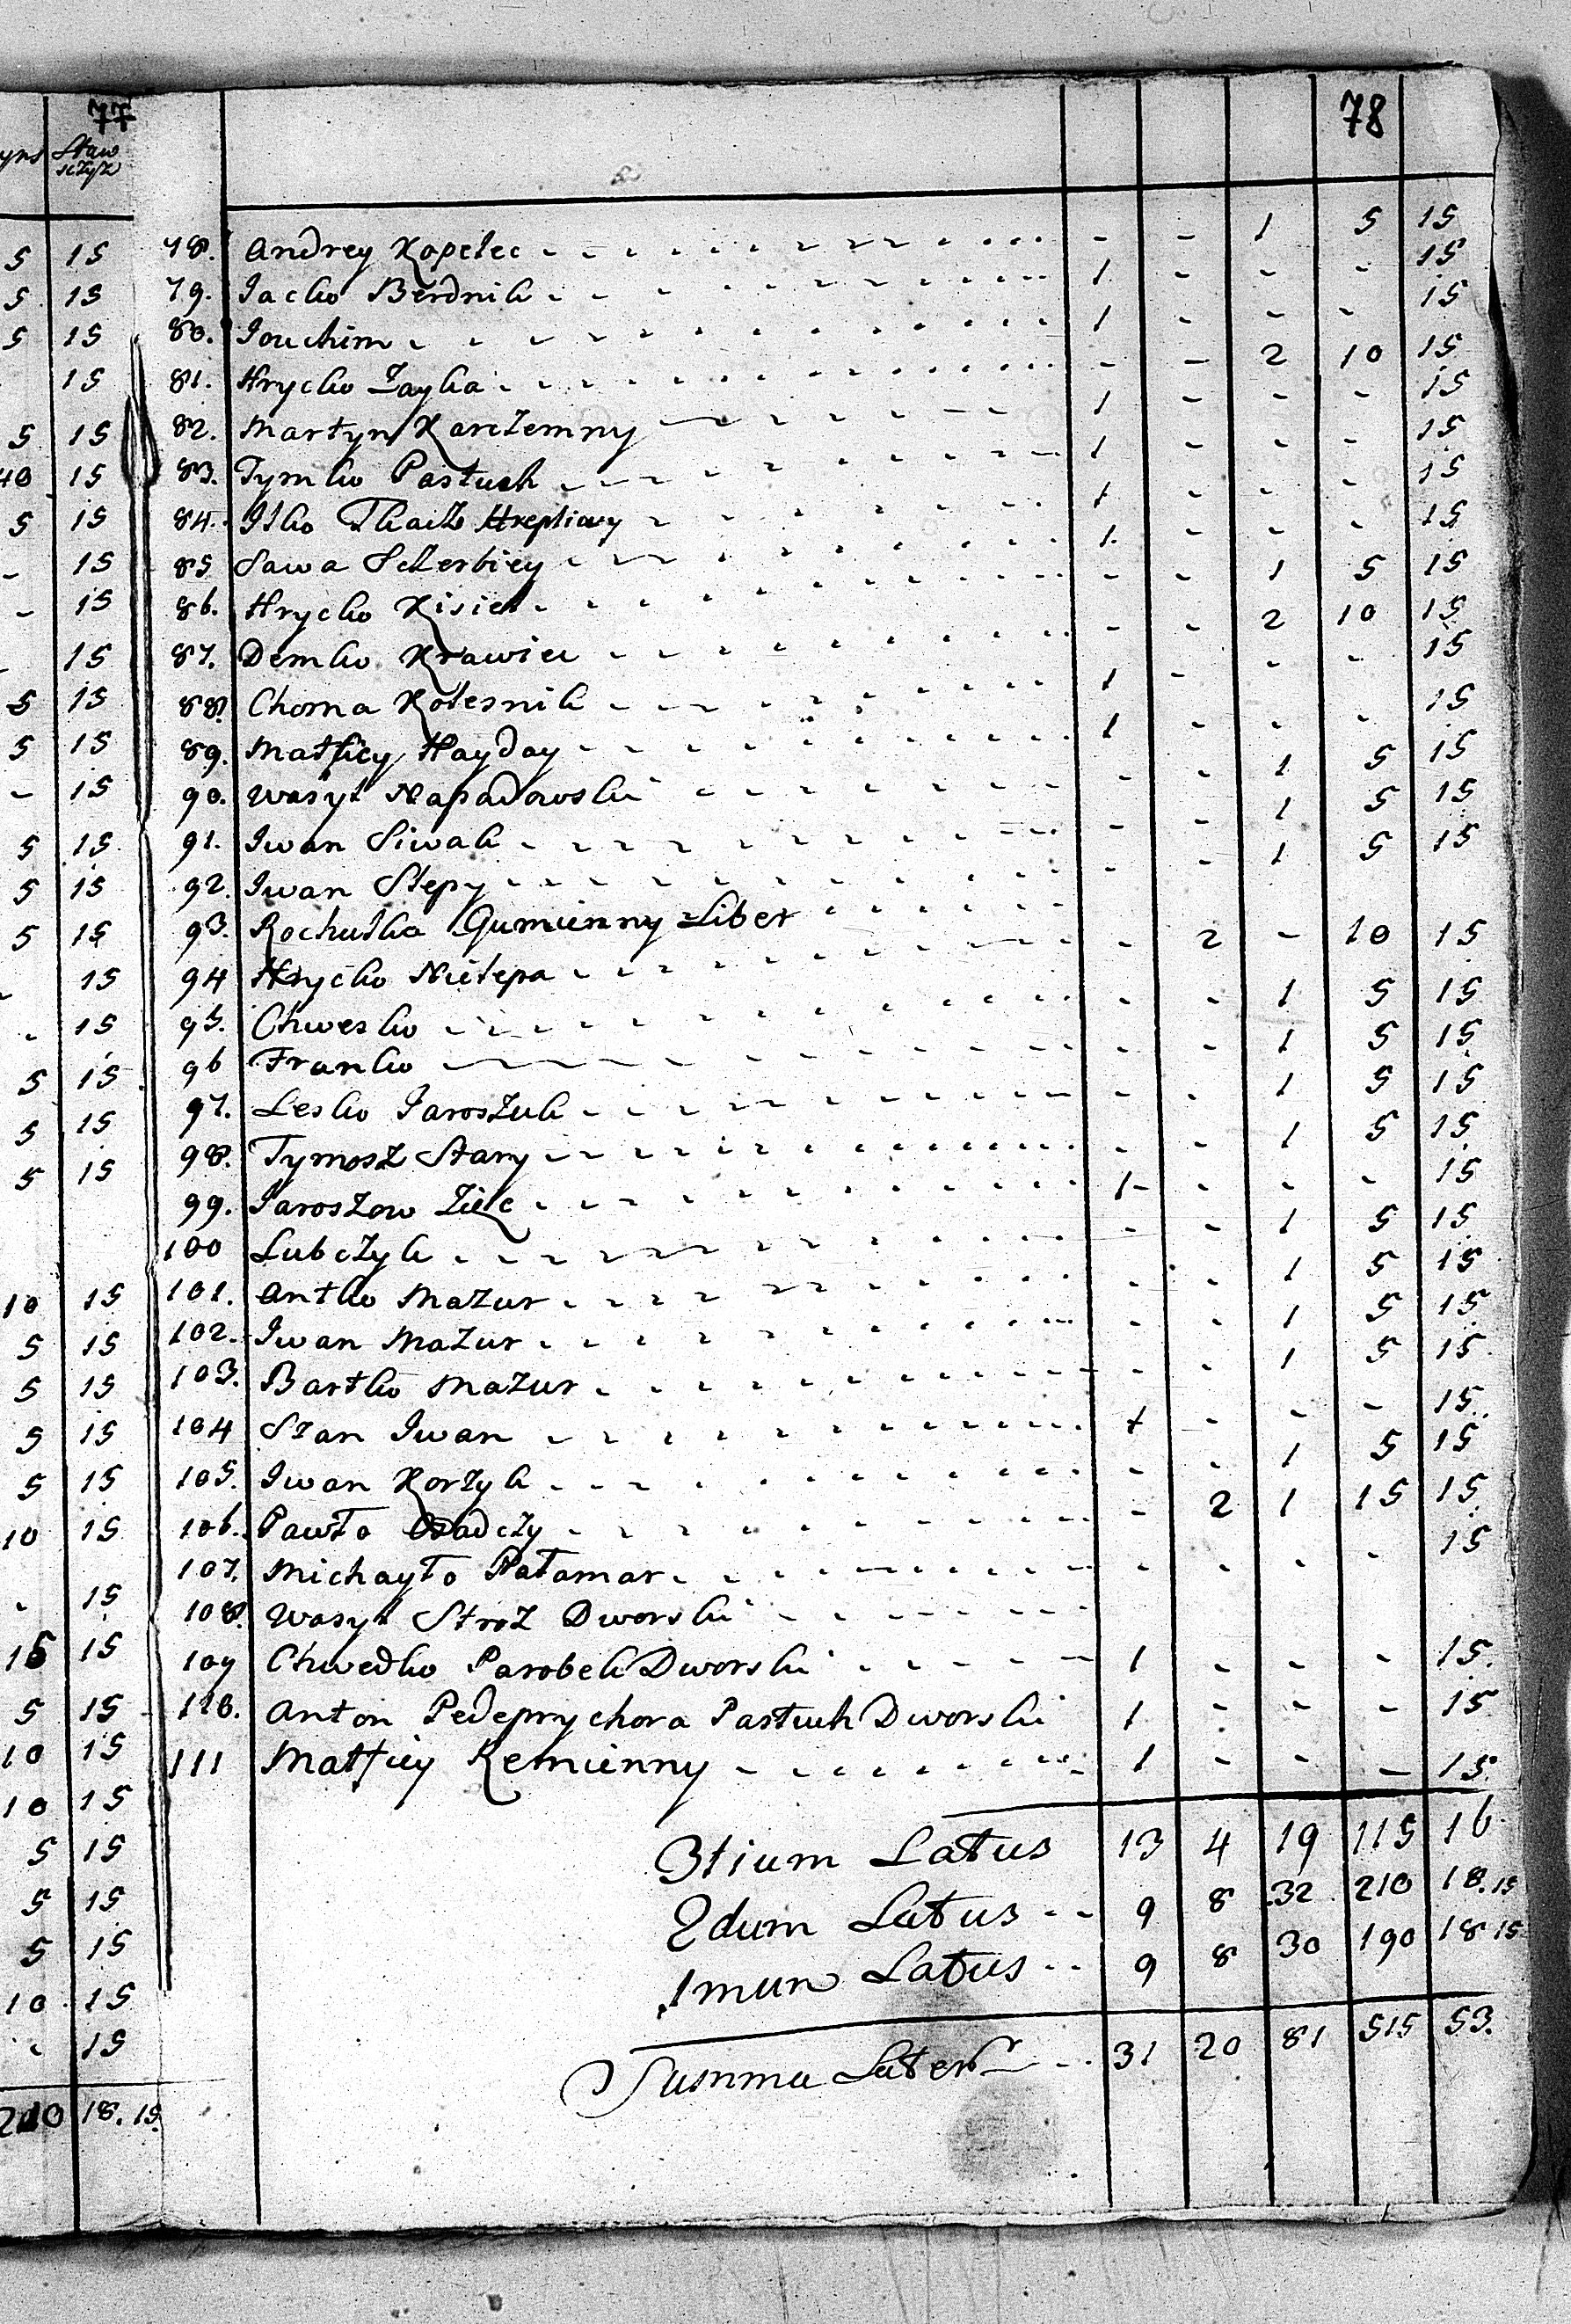 77
Staw
sczyz
78
5 15
5 15
5 15
15
5 15
40 15
5 15
- 15
- 15
15
5 15
5 15
- 15
5 15
5 15
5 15
- 15
- 15
5 15
5 15
5 15
10 15
5 15
5 15
5 15
5 15
10 15
- 15
15 15
5 15
10 15
10 15
5 15
5 15
5 15
10 15
- 15
210 18. 15.
78. Andrey Kopelec - - 1 5 15
79. Jacko Berdnik 1 - - - 15
80. Jouchim 1 - - - 15
81. Hrycko Zayka - - 2 10 15
82. Martyn Karczemny 1 - - - 15
83. Tymko Pastuch 1 - - - 15
84. Itko Tkacz 1 - - - 15
85 Sawa Sczerbiey 1. - - - 15
86. Hrycko Kisiel - - 1 5 15
87. Demko Krawiec - - 2 10 15
88. Choma Kolesnik 1 - - - 15
89. Matficy Hayday 1 - - - 15
90. Wasyl Napadowski - - 1 5 15
91. Iwan Siwak - - 1 5 15
92. Iwan Slepy - - 1 5 15
93. Kochutka Gumienny Liber
94 Hrycko Nielepa - 2 - 10 15
95. Chwesko - - 1 5 15
96 Franko - - 1 5 15
97. Lesko Jaroszuk - - 1 5 15
98. Tymosz Stary - - 1 5 15
99. Jaroszow Ziec 1 - - - - 15
100 Lubczyk - - 1 5 15
101. Antko Mazur - - 1 5 15
102. Iwan Mazur - - 1 5 15
103. Bartko Mazur - - 1 5 15
104 Szan Iwan 1 - - - 15
105. Iwan Korzyk - - 1 5 15
106. Pawło Osadczy - 2 1 15 15
107. Michayło Pałamar - - - - 15
108. Wasyl Stroz Dworski
109 Chwedko Parobek Dworski 1 - - - 15.
110. Anton Pedeprychora Pastuch Dworski 1 - - - 15
111 Matfiey Kemienny 1 - - - 15.
3tium Latus 13 4 19 115 16
2dum Latus 9 8 32 210 18. 15
1mum Latus 9 8 30 190 18 15
Summa Later 31 20 81 515 53.